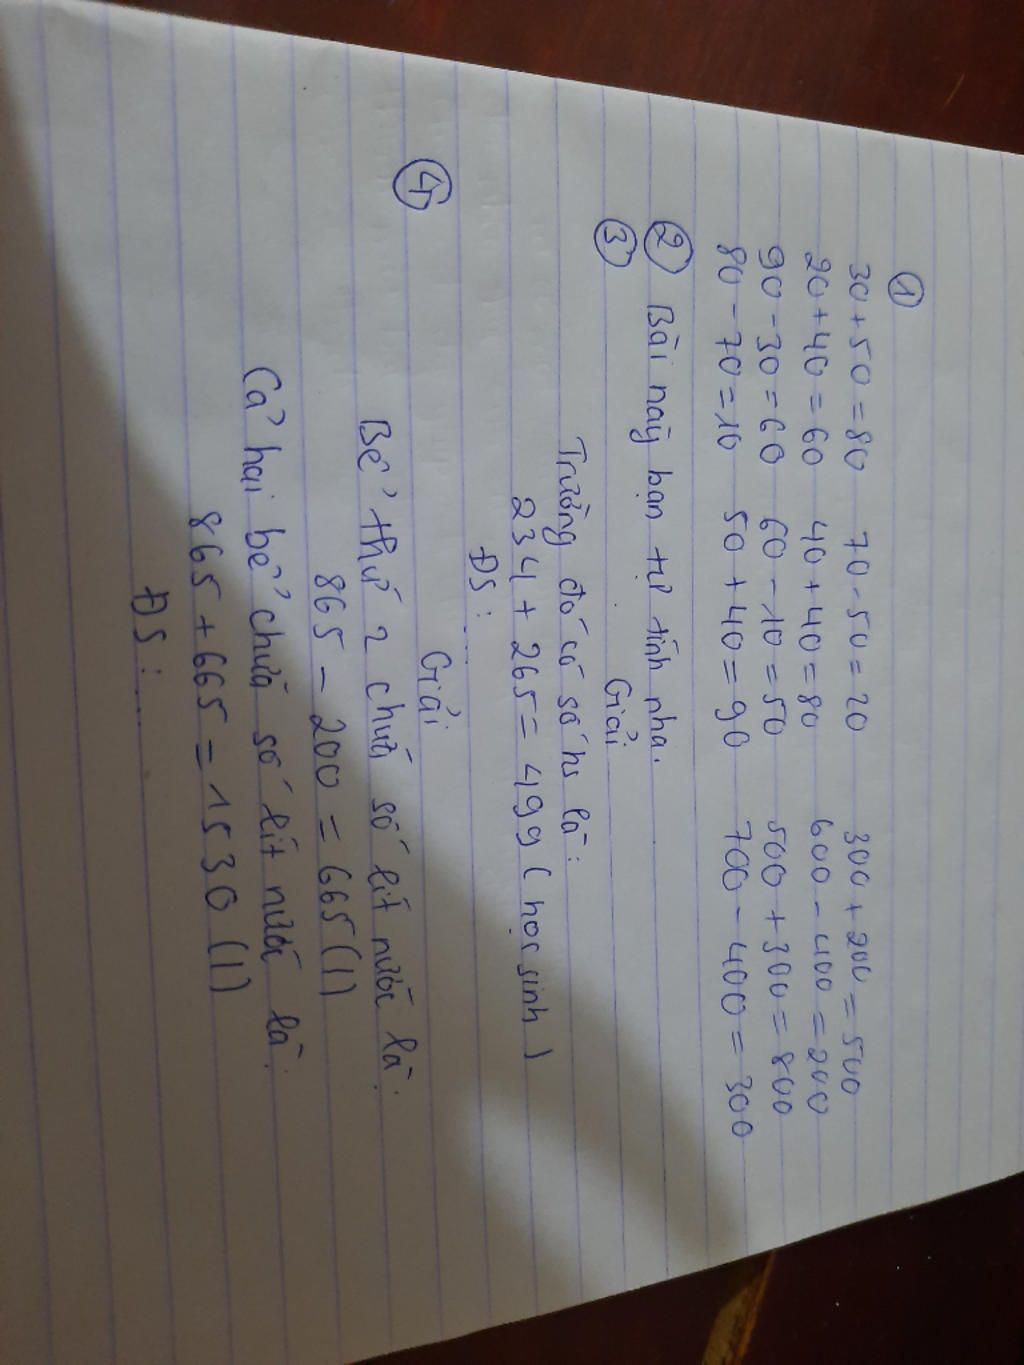 ①
30 + 50 = 80 70 - 50 = 20 300 + 200 = 500
20 + 40 = 60 40 + 40 = 80 600 - 400 = 200
90 - 30 = 60 60 - 10 = 50 500 + 300 = 800
80 - 70 = 10 50 + 40 = 90 700 - 400 = 300
② Bài này bạn tự tính nha.
③ Giải:
Trường đó có số hs là:
234 + 265 = 499 (học sinh)
ĐS: ...
④ Giải
Bể thứ 2 chứa số lít nước là:
865 - 200 = 665 (l)
Cả hai bể chứa số lít nước là:
865 + 665 = 1530 (l)
ĐS: ....